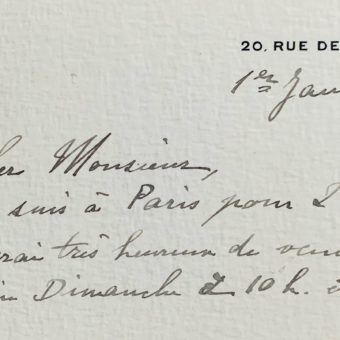 20, RUE DE
1er Jan
er Monsieur,
suis à Paris pour 2
rai très heureux de ven
Dimanche à 10h.